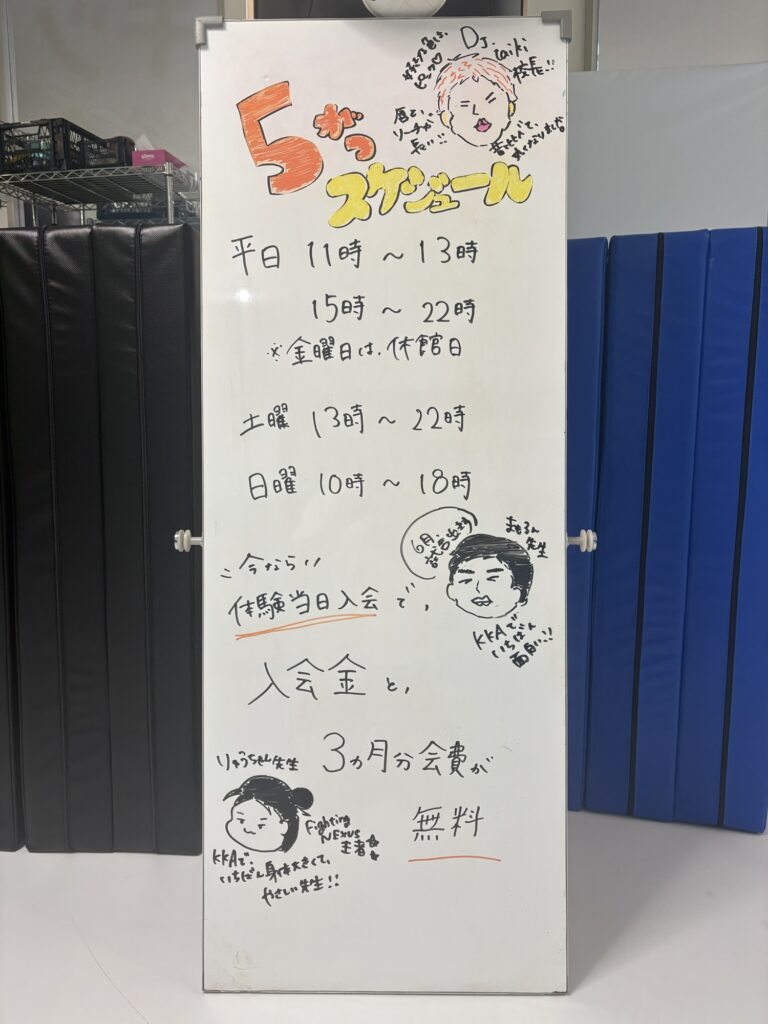 DJ.
taiki
校長!!
好きな色は、
ピンク♡
唇と、
リーチが
長い!!
5がつ
スケジュール
平日 11時 〜 13時
15時 〜 22時
※金曜日は、休館日
土曜 13時 〜 22時
日曜 10時 〜 18時
6月
試合出ます
まもるん
先生
KKAで
いちばん
面白い!!
今なら
体験当日入会で、
入会金と、
3ヵ月分会費が
無料
りゅうちゃん先生
Fighting
NEXUS
王者
KKAで、
いちばん身体大きくて、
やさしい先生!!